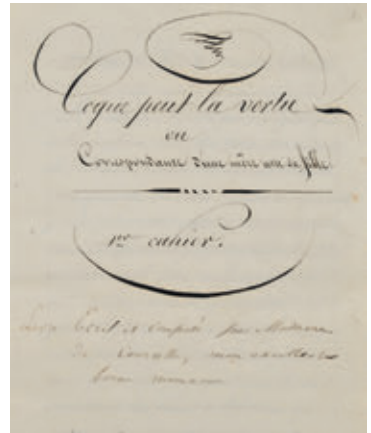 Ceque peut la vertu
ou
Correspondance d'une mère avec sa fille.
1er cahier.
écrit et composé par Madame
de mon excellente
bonne maman